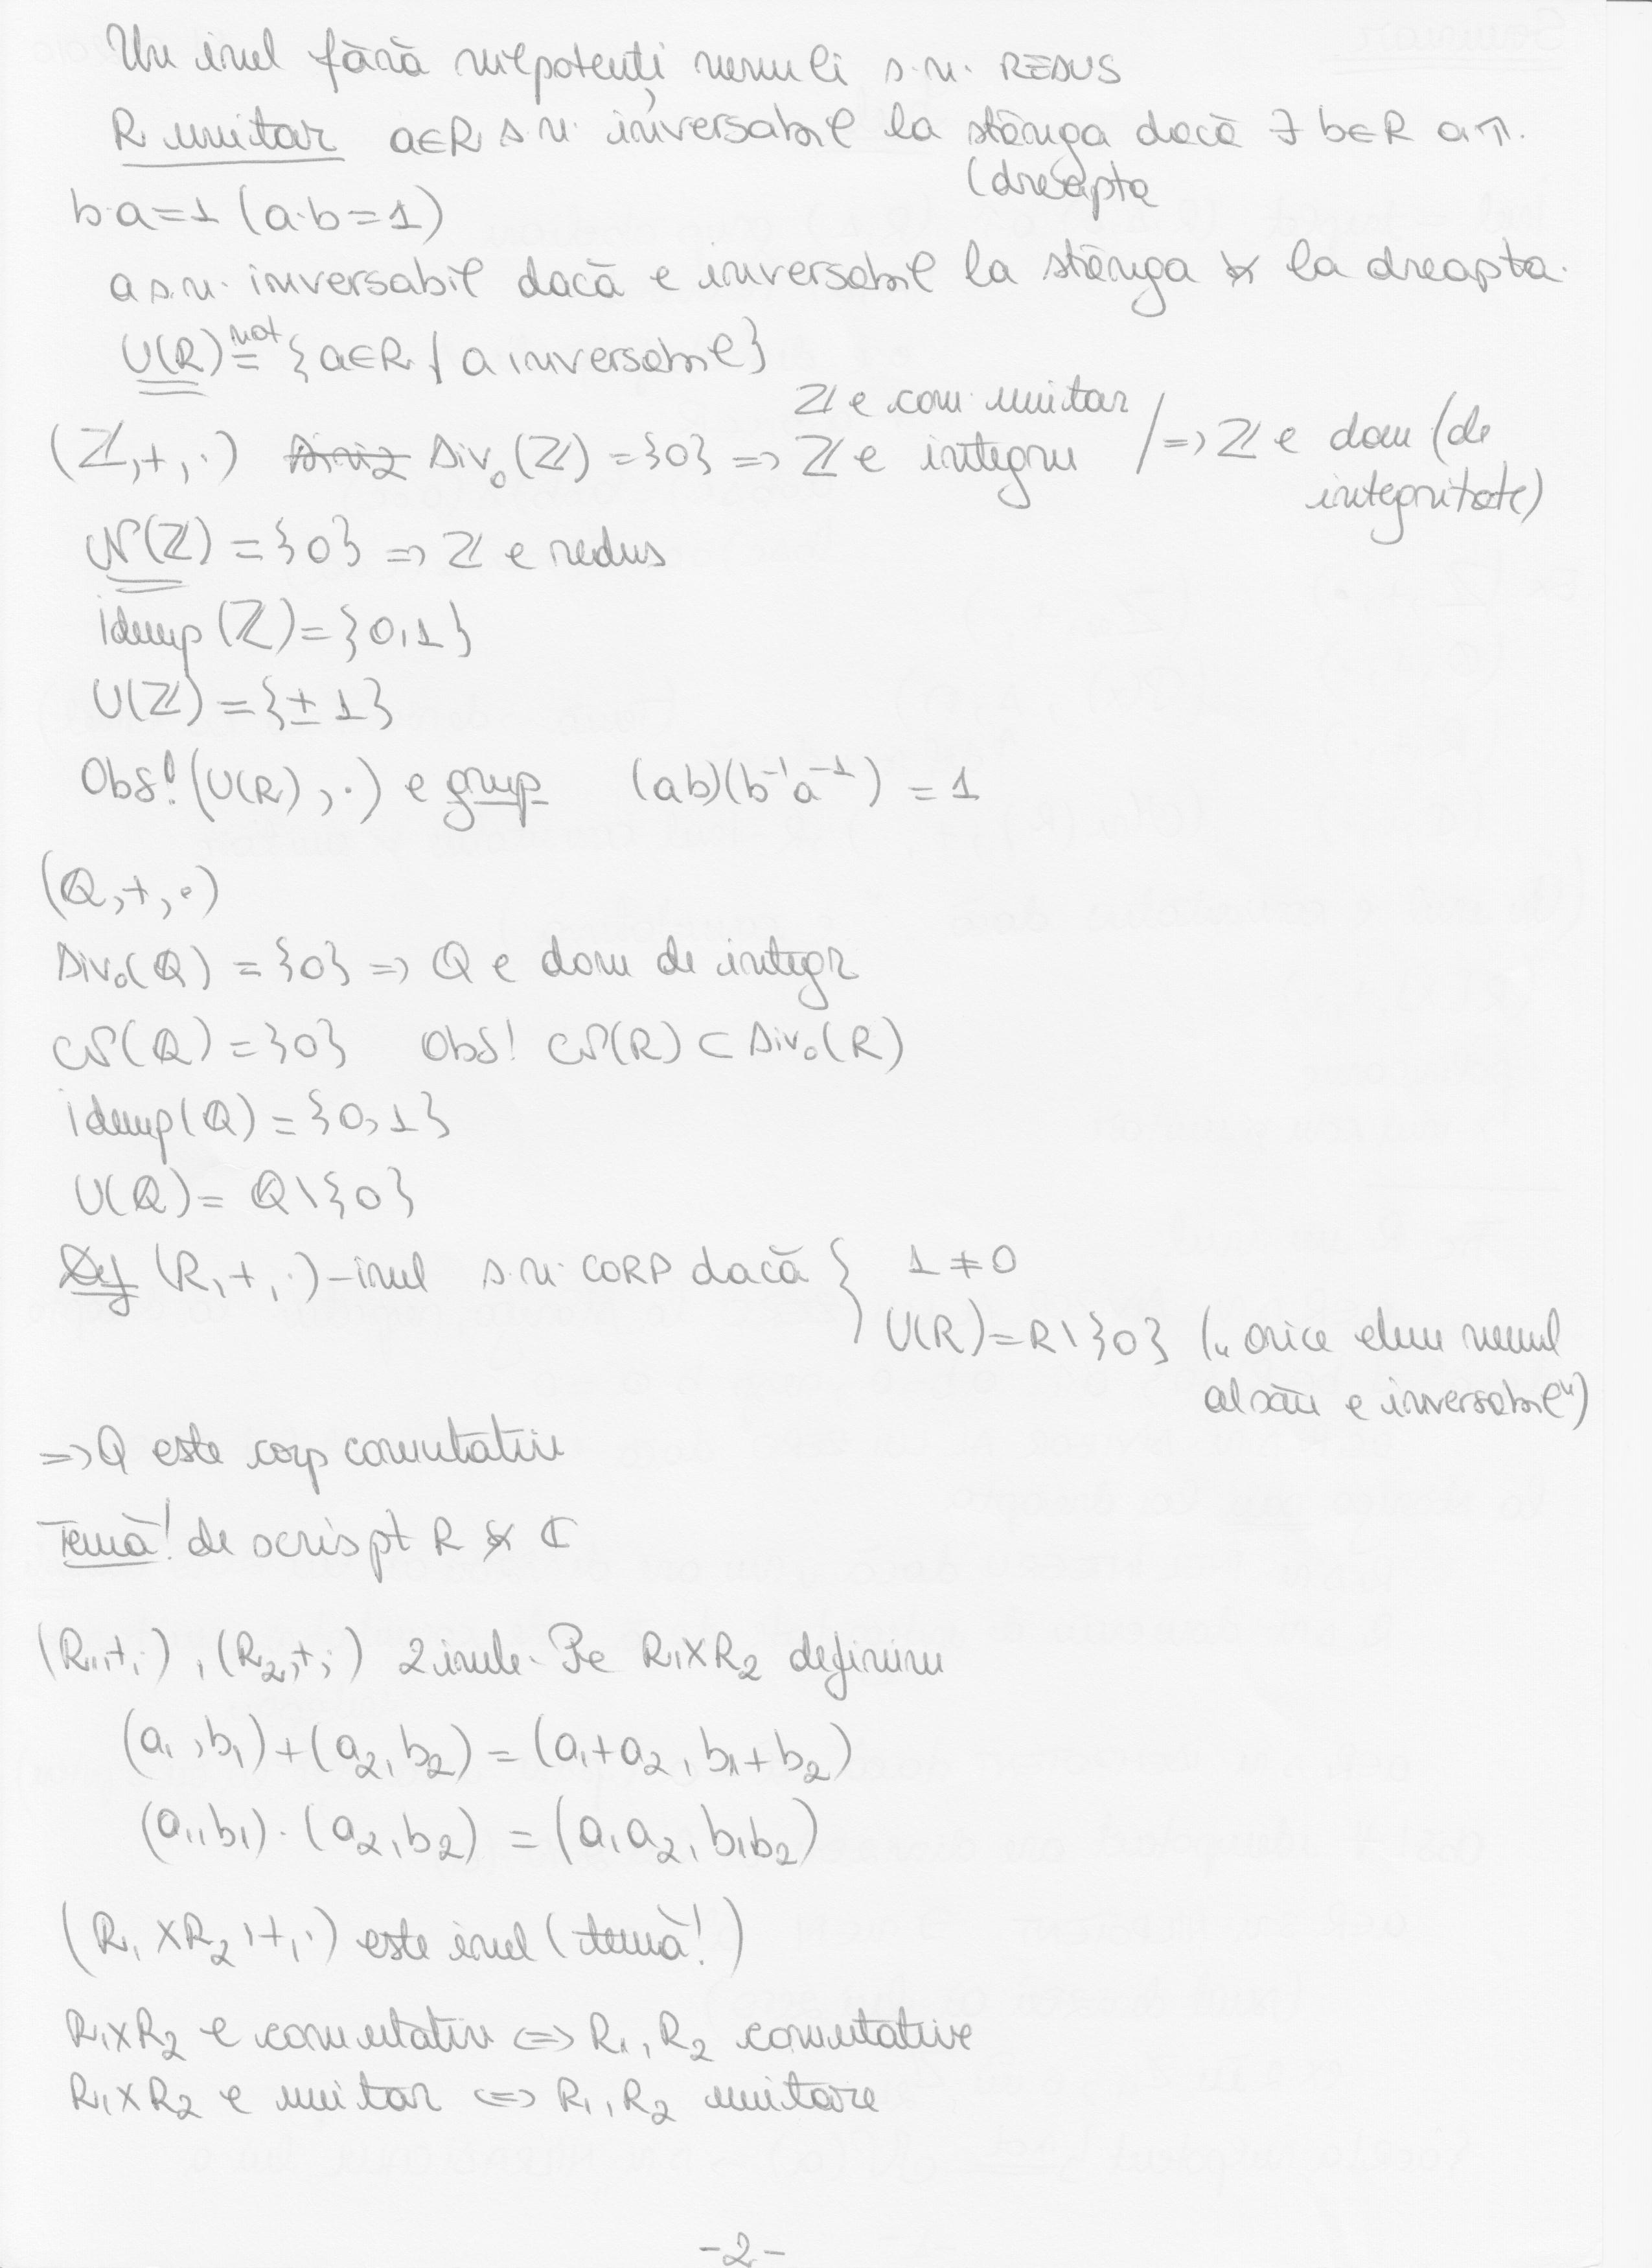 Un inel fără nilpotenți nenuli s.n. REDUS
R unitar a∈R s.n. inversabil la stânga dacă ∃ b∈R a.î.
(dreapta
b·a=1 (a·b=1)
a s.n. inversabil dacă e inversabil la stânga și la dreapta.
U(R) not= {a∈R | a inversabil}
ℤ e com. unitar
(ℤ,+,·) Div₀(ℤ) = {0} => ℤ e integru / => ℤ e dom (de
integritate)
𝒩(ℤ) = {0} => ℤ e redus
idemp(ℤ) = {0,1}
U(ℤ) = {±1}
Obs! (U(R),·) e grup (ab)(b⁻¹a⁻¹) = 1
(ℚ,+,·)
Div₀(ℚ) = {0} => ℚ e dom de integr
𝒩(ℚ) = {0} Obs! 𝒩(R) ⊂ Div₀(R)
idemp(ℚ) = {0,1}
U(ℚ) = ℚ\{0}
Def (R,+,·)-inel s.n. CORP dacă { 1≠0
U(R)=R\{0} („orice elem nenul
al său e inversabil")
=> ℚ este corp comutativ
Temă! de scris pt R și ℂ
(R₁,+,·), (R₂,+,·) 2 inele. Pe R₁×R₂ definim
(a₁,b₁)+(a₂,b₂) = (a₁+a₂, b₁+b₂)
(a₁,b₁)·(a₂,b₂) = (a₁a₂, b₁b₂)
(R₁×R₂,+,·) este inel (temă!)
R₁×R₂ e comutativ <=> R₁, R₂ comutative
R₁×R₂ e unitar <=> R₁, R₂ unitare
-2-